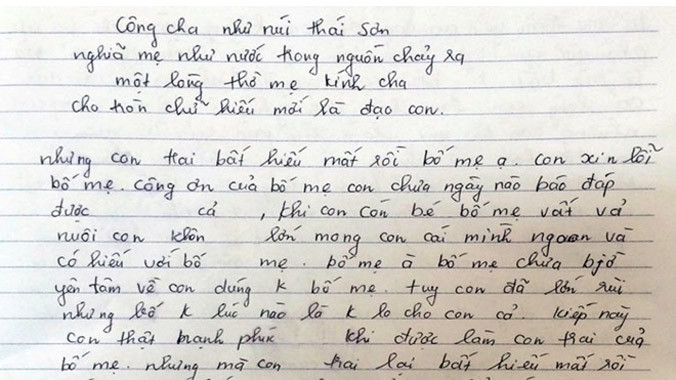 Công cha như núi thái sơn
nghiã mẹ như nước trong nguồn chảy ra
một lòng thờ mẹ kính cha
cho tròn chữ hiếu mới là đạo con.
nhưng con trai bất hiếu mất rồi bố mẹ ạ. con xin lỗi
bố mẹ. công ơn của bố mẹ con chưa ngày nào báo đáp
được cả, khi con còn bé bố mẹ vất vả
nuôi con khôn lớn mong con cái mình ngoan và
có hiếu với bố mẹ. bố mẹ à bố mẹ chưa bjờ
yên tâm về con đúng k bố mẹ. tuy con đã lớn rùi
nhưng bố k lúc nào là k lo cho con cả. kiếp này
con thật hạnh phúc khi được làm con trai của
bố mẹ. nhưng mà con trai lại bất hiếu mất rồi